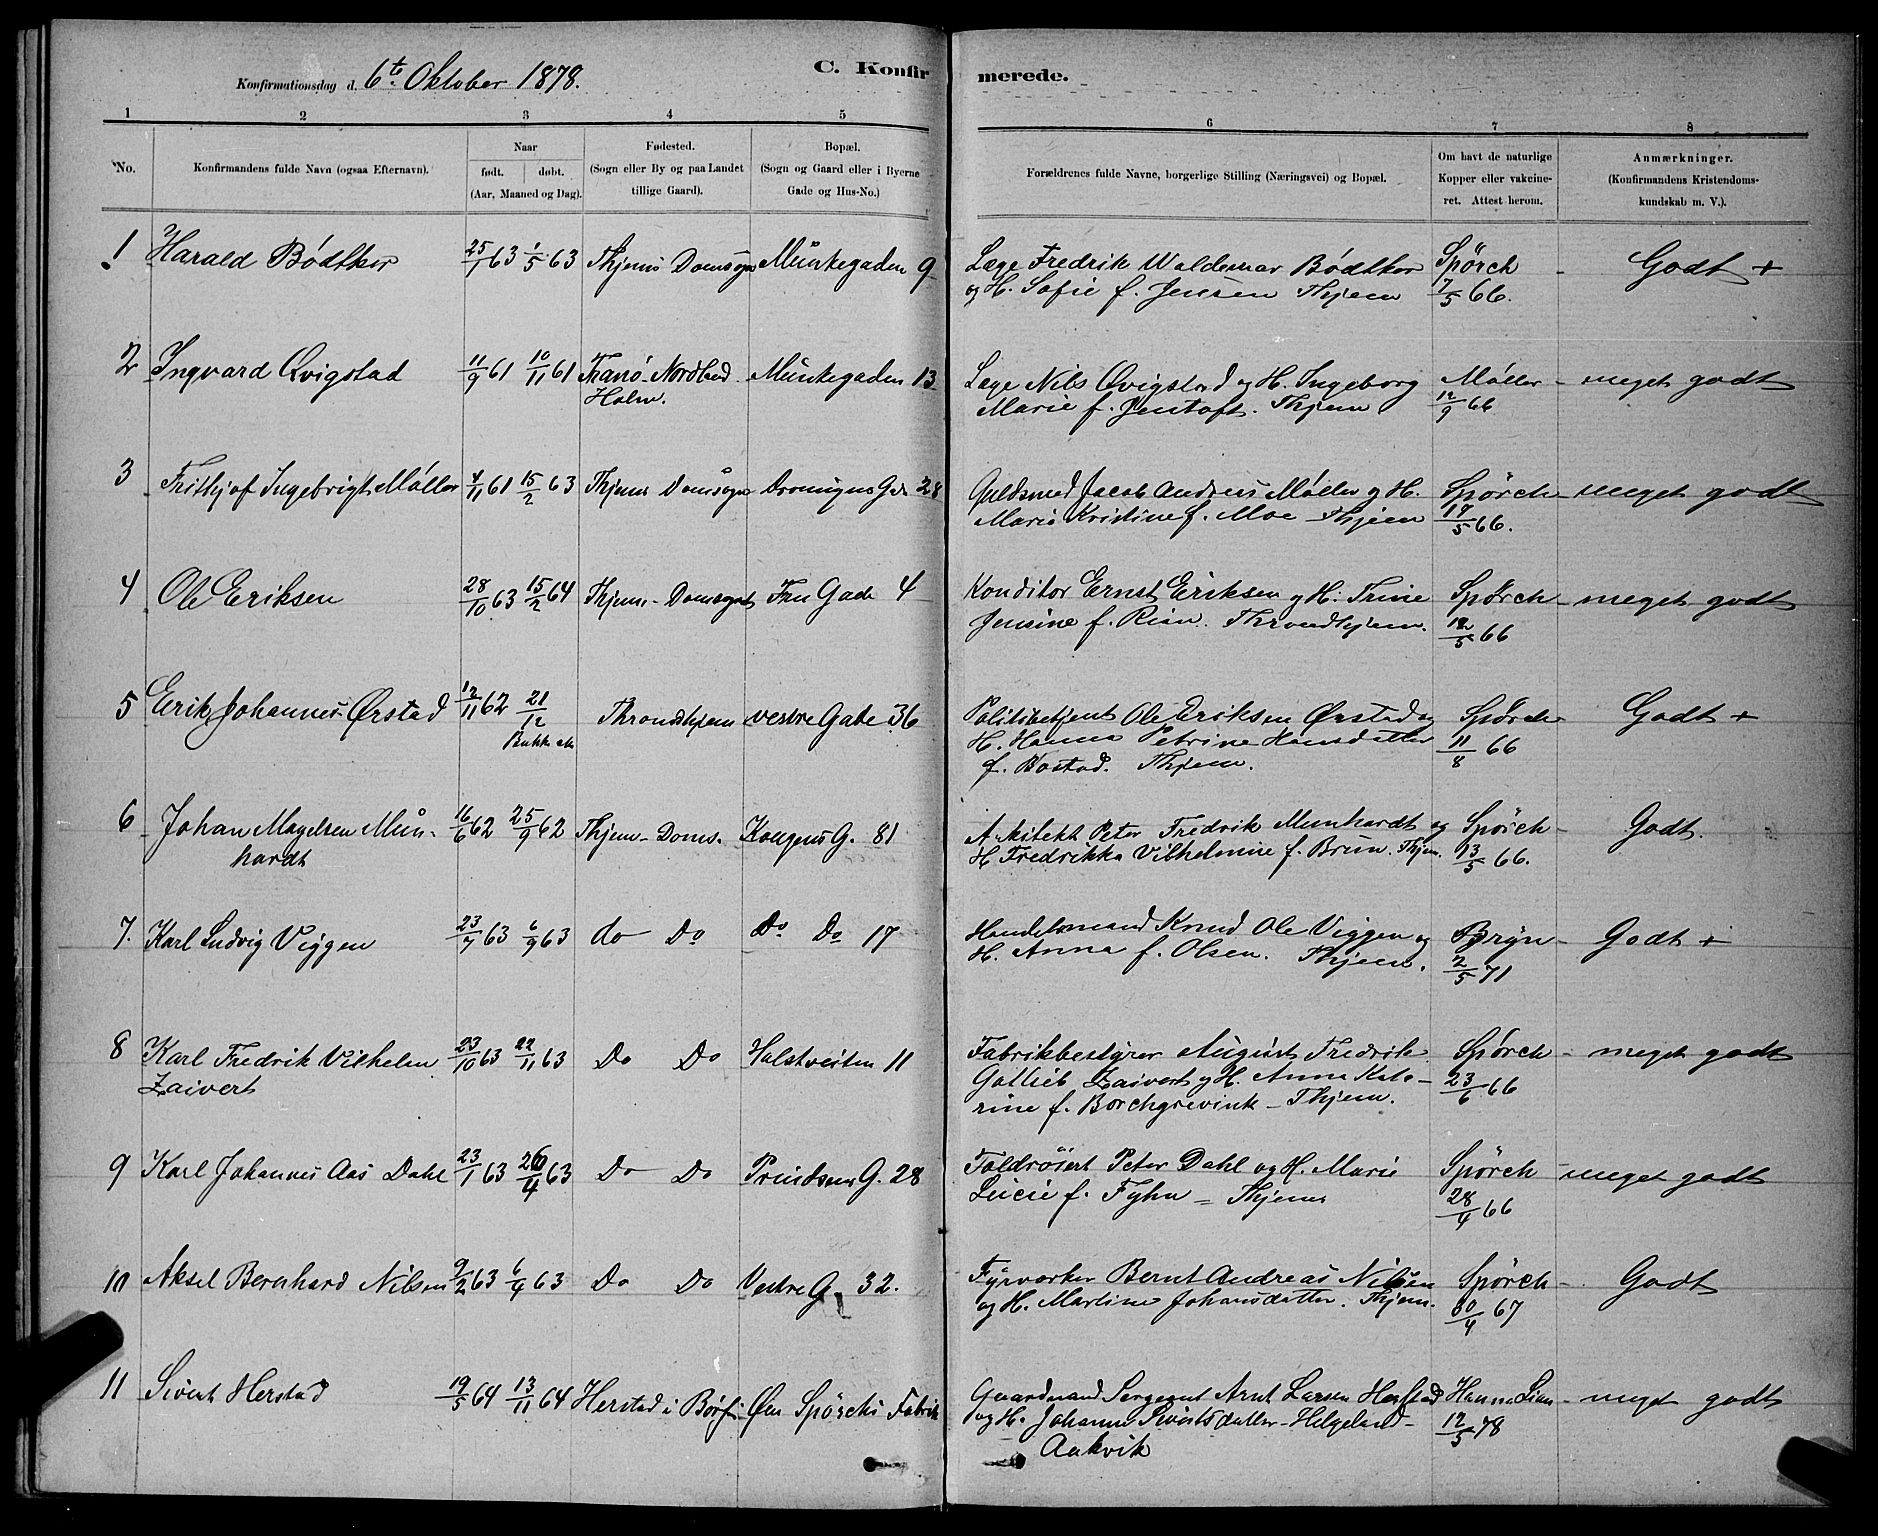 Konfirmationsdag d. 6te Oktober 1878.
C. Konfirmerede.
1 2 3 4 5 6 7 8
No.
Konfirmandens fulde Navn (ogsaa Efternavn).
Naar
født. døbt.
(Aar, Maaned og Dag).
Fødested.
(Sogn eller By og paa Landet
tillige Gaard).
Bopæl.
(Sogn og Gaard eller i Byerne
Gade og Hus-No.)
Forældrenes fulde Navne, borgerlige Stilling (Næringsvei) og Bopæl.
Om havt de naturlige
Kopper eller vakcine-
ret. Attest herom.
Anmærkninger.
(Konfirmandens Kristendoms-
kundskab m. V.).
1 Harald Bødtker 25/1 63 1/5 63 Thjems Domsogn Munkegaden 9 Læge Fredrik Waldemar Bødtker Spörch Godt +
og H. Sofie f. Jensen Thjem 7/5 66.
2 Ingvard Qvigstad 11/9 61 10/11 61 Tranö Nordland Munkegaden 13 Læge Nils Qvigstad og H. Ingeborg Møller meget godt
Holm. Marie f. Jentoft. Thjem 12/9 66
3 Frithjof Ingebrigt Møller 4/11 61 15/2 63 Thjems Domsogn Dronnigens Gd 28 Guldsmed Jacob Andreas Møller og H. Spörch meget godt
Marie Kristine f. Moe Thjem 17/5 66.
4 Ole Eriksen 28/10 63 15/2 64 Thjems Domsognet Fru Gade 4 Konditor Ernst Eriksen og H. Trine Spörch meget godt
Jensine f. Rian. Throndhjem. 12/5 66
5 Erik Johannes Ørstad 12/11 62 21/12 Throndhjem vestre Gade 36 Politibetjent Ole Eriksen Ørstad og Spörch Godt +
H. Hanna Petrine Hansdatter 11/8 66
f. Bostad. Thjem.
6 Johan Magelsen Mun- 16/6 62 25/9 62 Thjem Doms. Kongens G. 81 Arkitekt Peter Fredrik Munhardt og Spörch Godt.
hardt H. Fredrikka Vilhelmine f. Brun. Thjem. 13/5 66.
7. Karl Ludvig Viggen 23/7 63 6/9 63 do Do Do Do 17 Handelsmand Knud Ole Viggen og Bryn Godt +
H. Anna f. Olsen. Thjem. 2/5 71
8 Karl Fredrik Vilhelm 23/10 63 22/11 63 Do Do Holstveiten 11 Fabrikbestyrer August Fredrik Spörch meget godt
Zaivert Gotlieb Zaivert og H. Anna Kata- 23/6 66
rine f. Borchgrevink Thjem.
9 Karl Johannes Aas Dahl 23/1 63 26/4 63 Do Do Prindsens G. 28 Toldrosert Peter Dahl og H. Marie Spörch meget godt
Lucie f. Fyhn Thjem 28/4 66
10 Aksel Bernhard Nilsen 9/2 63 6/4 63 Do Do Vestre G. 32. Fyrvorker Bernt Andreas Nilsen Spörch Godt
og H. Martine Johansdatter. Thjem. 30/4 67
11 Sivert Herstad 19/5 64 13/11 64 Herstad i Børs Øen Spörchs Fabrik Gaardmand Sergeant Arnt Larsen Herstad Hanna meget godt
og H. Johanna Sivertsdatter Helgeland 12/5 78
Aakvik